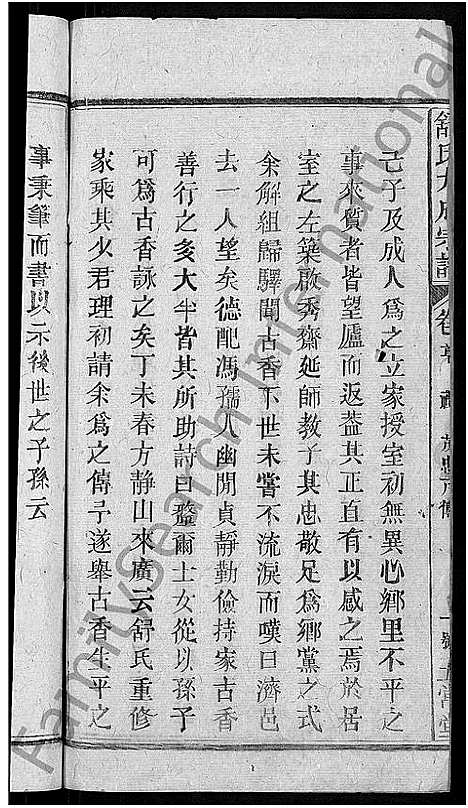 舒氏大成宗譜
己子及成人爲之立家授室初無異心鄉里不平之
事來質者皆望廬而返葢其正直有以感之焉於居
室之左築啟秀齋延師教子其忠敬足爲鄉黨之式
余解組歸驛聞古香下世未嘗不流淚而嘆曰濟邑
去一人望矣德配馮孺人幽閒貞靜勤儉持家古香
善行之多大半皆其所助詩曰釐爾士女從以孫子
可爲古香詠之矣丁未春方静山來廣云舒氏重修
家乘其少君理初請余爲之傳予遂舉古香生平之
事秉筆而書以示後世之子孫云
FamilySearch International